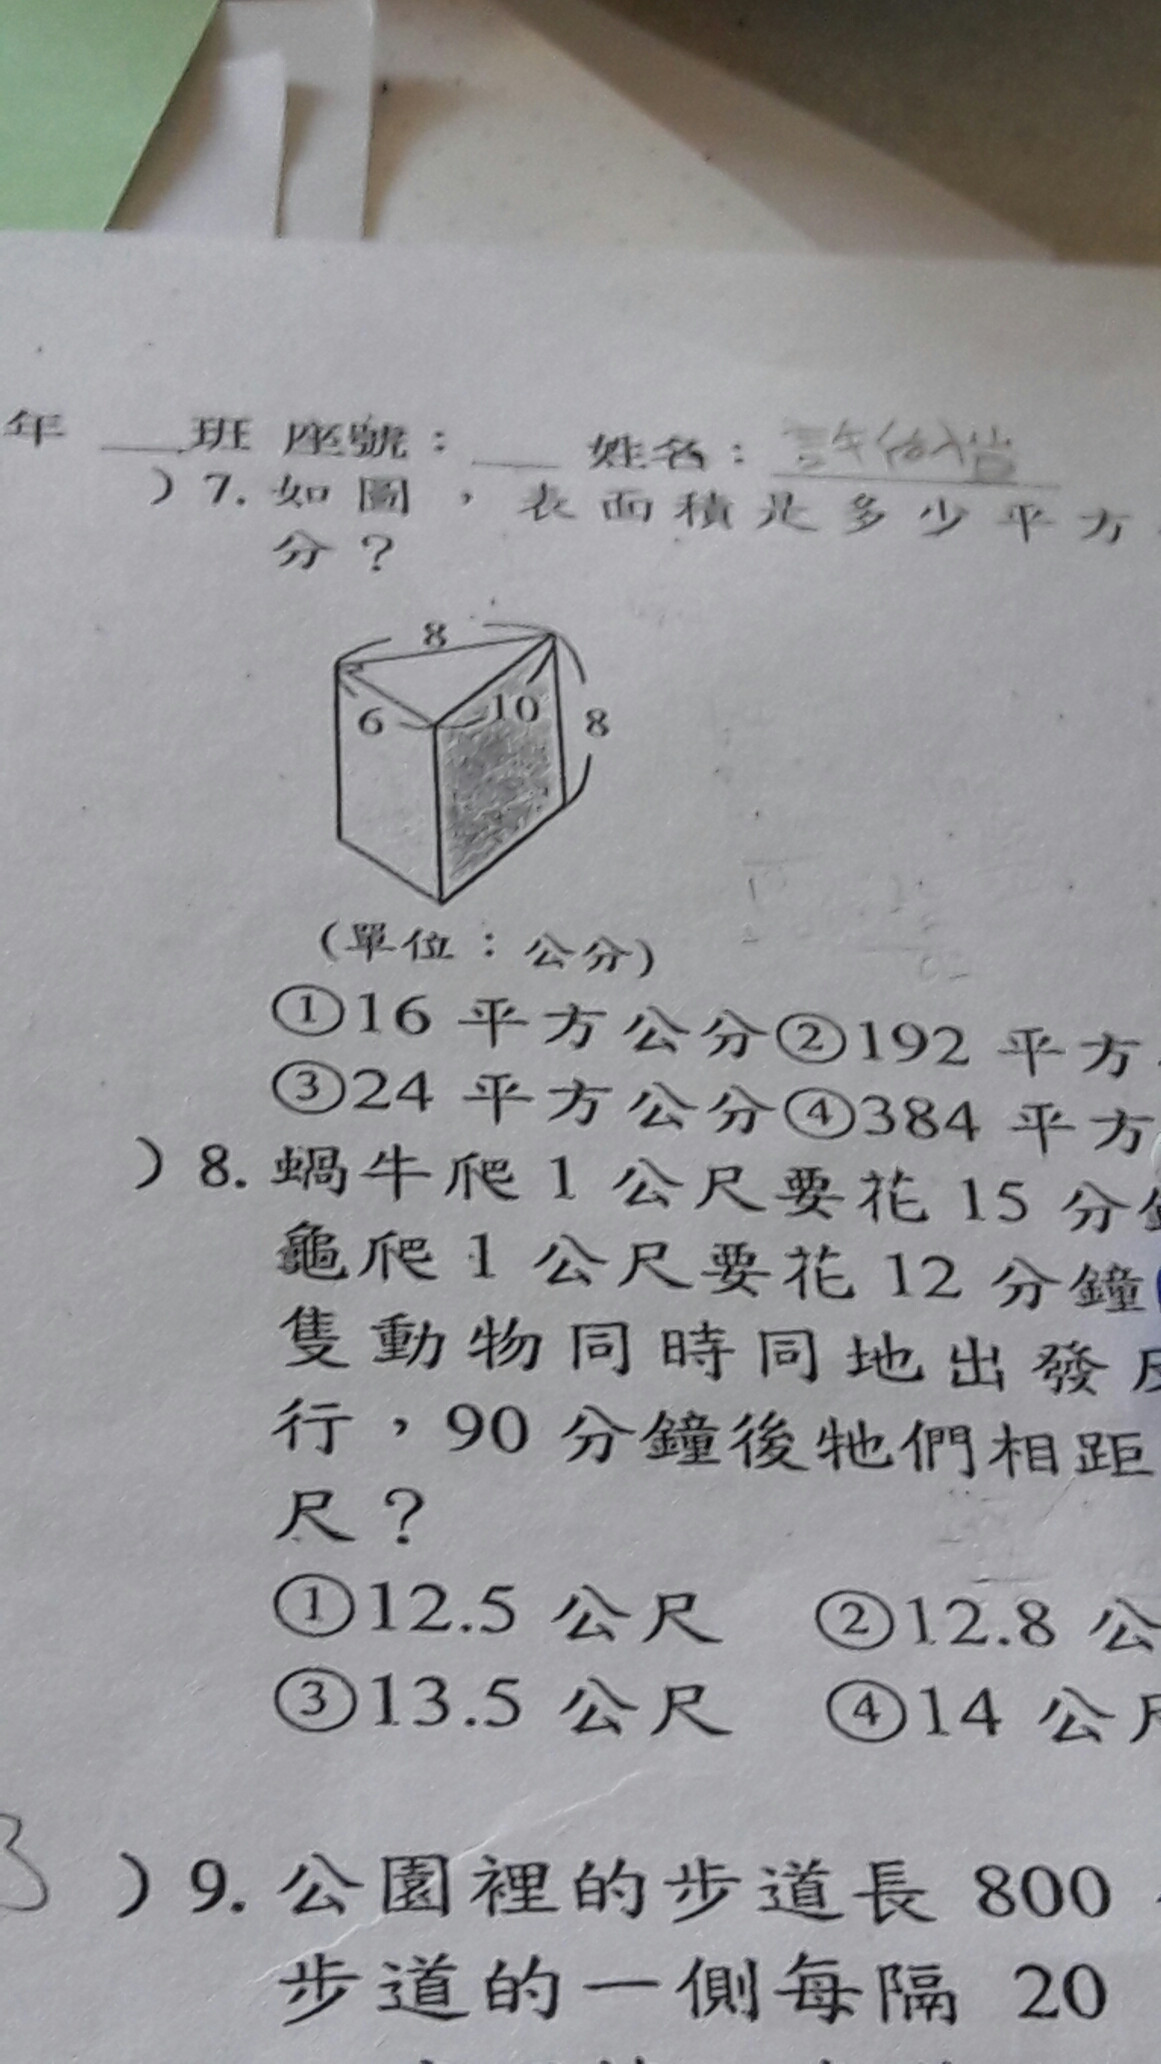 年 班 座號： 姓名：
）7. 如圖，表面積是多少平方
分？
8
6
10
8
(單位：公分)
①16 平方公分②192 平方
③24 平方公分④384 平方
）8. 蝸牛爬 1 公尺要花 15 分
龜爬 1 公尺要花 12 分鐘
隻動物同時同地出發
行，90 分鐘後牠們相距
尺？
①12.5 公尺 ②12.8 公
③13.5 公尺 ④14 公
3 ）9. 公園裡的步道長 800
步道的一側每隔 20